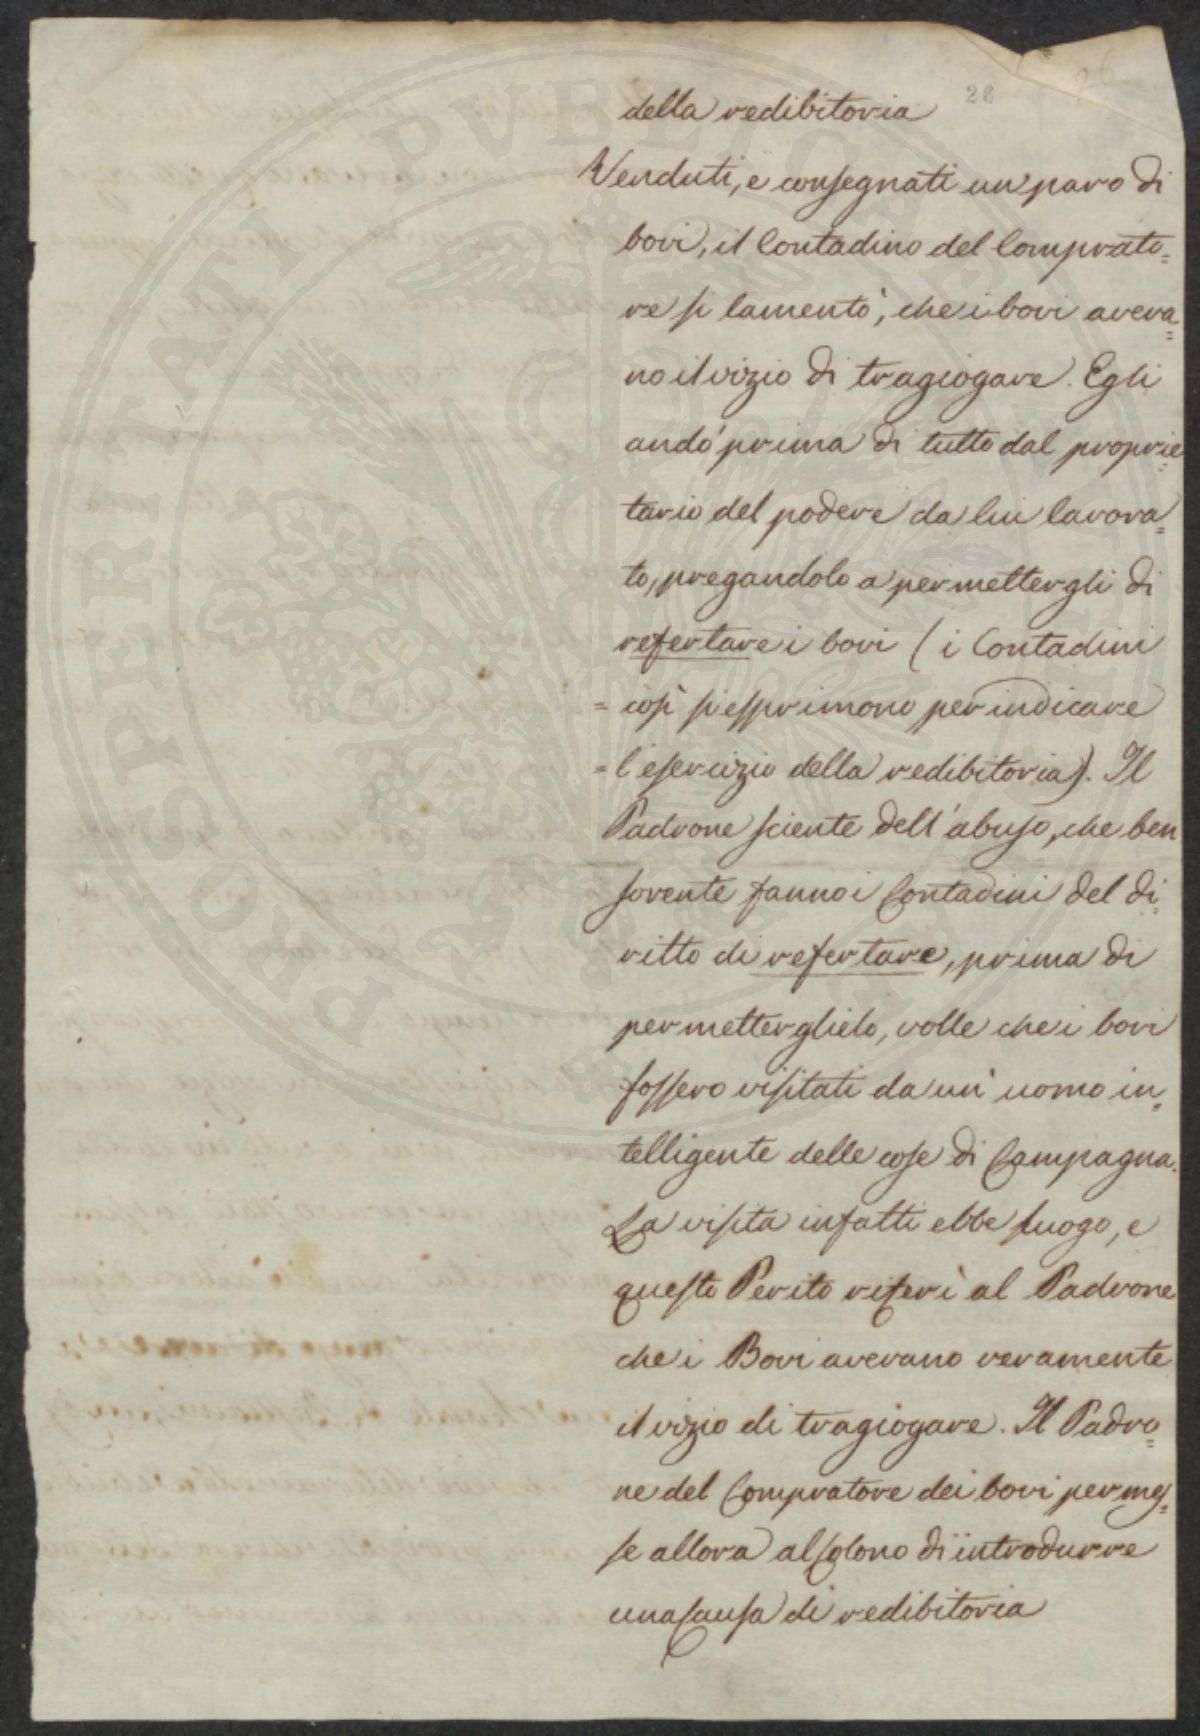 26
26
della redibitoria
Venduti, e consegnati un paro di
bovi, il Contadino del Comprato=
re si lamentò, che i bovi aveva=
no il vizio di tragiogare. Egli
andò prima di tutto dal proprie=
tario del podere da lui lavora=
to, pregandolo a permettergli di
refertare i bovi (i Contadini
= così si esprimono per indicare
= l'esercizio della redibitoria). Il
Padrone sciente dell'abuso, che ben
sovente fanno i Contadini del di=
ritto di refertare, prima di
permetterglielo, volle che i bovi
fossero visitati da un' uomo in=
telligente delle cose di Campagna.
La visita infatti ebbe luogo, e
questo Perito riferì al Padrone
che i Bovi avevano veramente
il vizio di tragiogare. Il Padro=
ne del Compratore dei bovi permes=
se allora al Colono di introdurre
una Causa di redibitoria
PROSPERITATI PUBLICAE